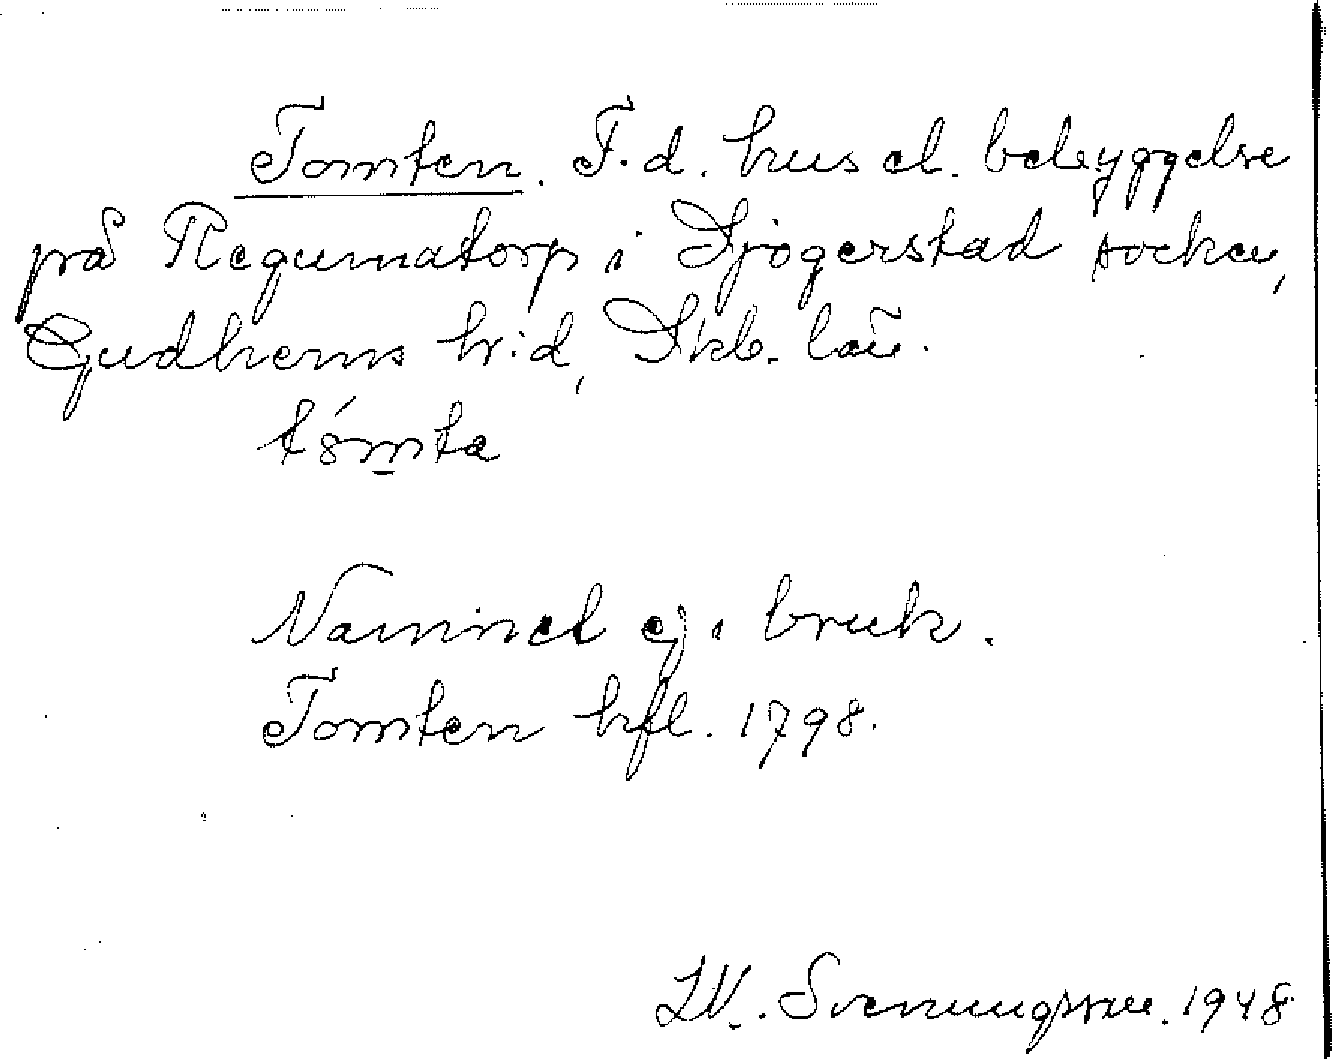 Tomten. F.d. hus el. bebyggelse
på Regumatorp i Sjogerstad socken,
Gudhems h:d, Skb. län.
tómta
Namnet ej i bruk.
Tomten hfl. 1798.
Svenungsson. 1948